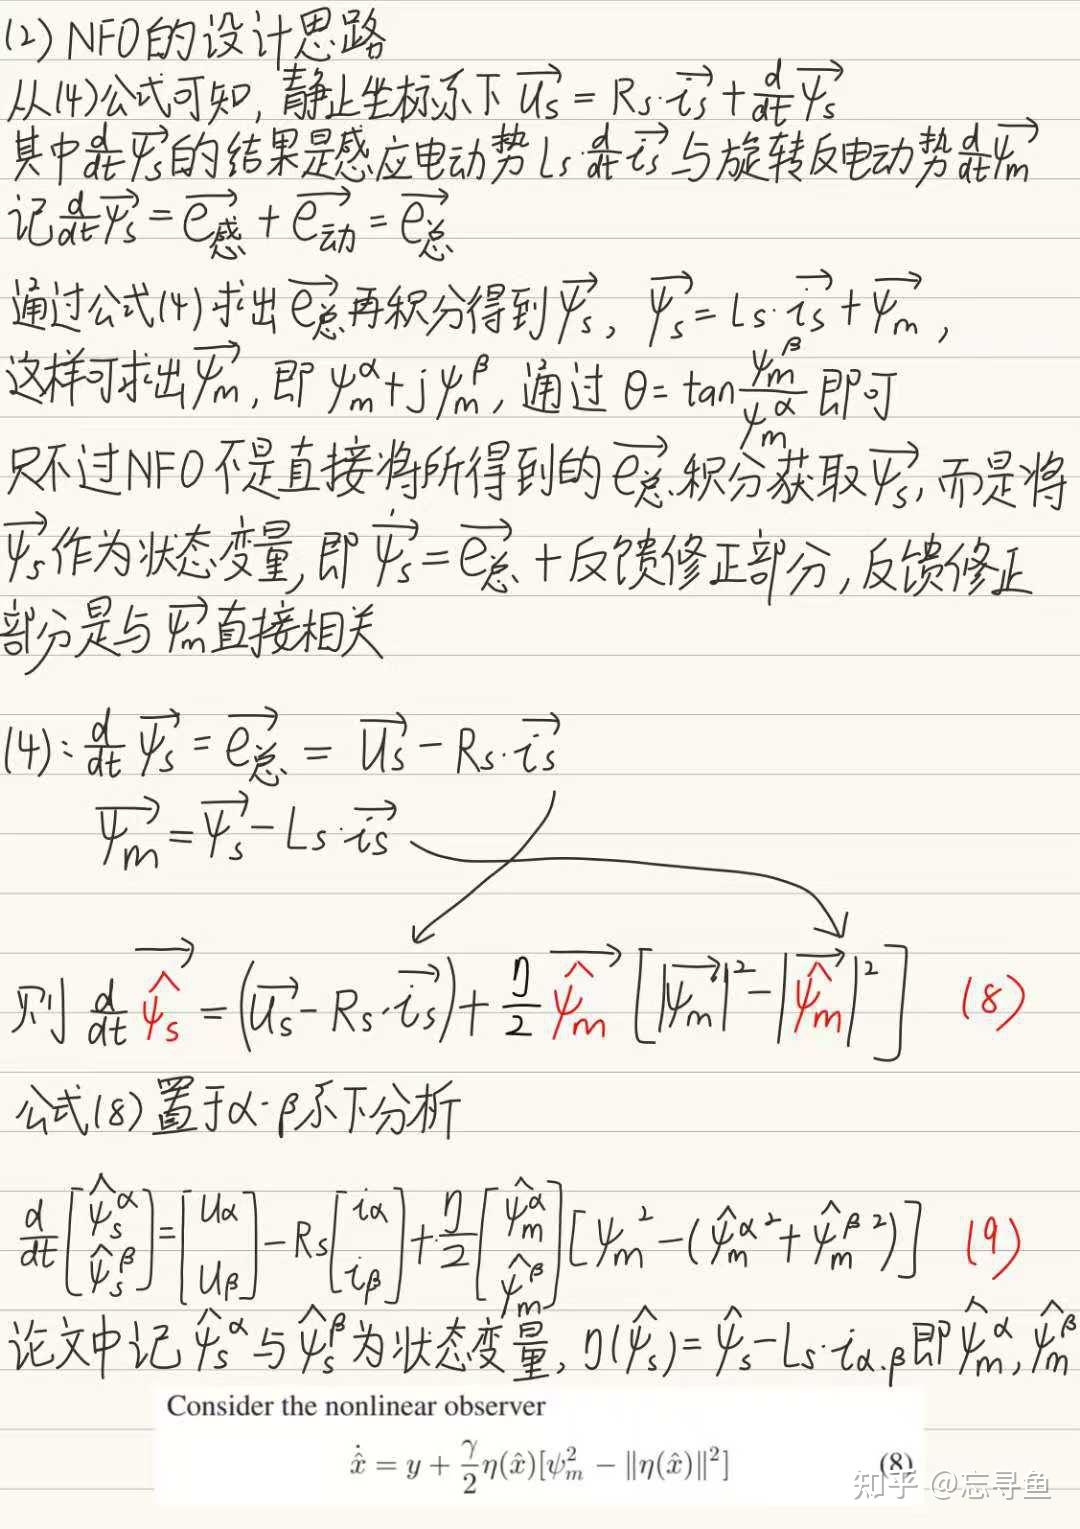 (2) NFO的设计思路
从(4)公式可知, 静止坐标系下 $\overrightarrow{u_s} = R_s \cdot \overrightarrow{i_s} + \frac{d}{dt}\overrightarrow{\psi_s}$
其中 $\frac{d}{dt}\overrightarrow{\psi_s}$ 的结果是感应电动势 $L_s \cdot \frac{d}{dt}\overrightarrow{i_s}$ 与旋转反电动势 $\frac{d}{dt}\overrightarrow{\psi_m}$
记 $\frac{d}{dt}\overrightarrow{\psi_s} = \overrightarrow{e_{感}} + \overrightarrow{e_{动}} = \overrightarrow{e_{总}}$
通过公式(4)求出 $\overrightarrow{e_{总}}$ 再积分得到 $\overrightarrow{\psi_s}$, $\overrightarrow{\psi_s} = L_s \cdot \overrightarrow{i_s} + \overrightarrow{\psi_m}$,
这样可求出 $\overrightarrow{\psi_m}$, 即 $\psi_m^\alpha + j\psi_m^\beta$, 通过 $\theta = \tan\frac{\psi_m^\beta}{\psi_m^\alpha}$ 即可
只不过NFO不是直接将所得到的 $\overrightarrow{e_{总}}$ 积分获取 $\overrightarrow{\psi_s}$, 而是将
$\overrightarrow{\psi_s}$ 作为状态变量, 即 $\dot{\overrightarrow{\psi_s}} = \overrightarrow{e_{总}}$ + 反馈修正部分, 反馈修正
部分是与 $\overrightarrow{\psi_m}$ 直接相关
(4): $\frac{d}{dt}\overrightarrow{\psi_s} = \overrightarrow{e_{总}} = \overrightarrow{u_s} - R_s \cdot \overrightarrow{i_s}$
$\overrightarrow{\psi_m} = \overrightarrow{\psi_s} - L_s \cdot \overrightarrow{i_s}$
则 $\frac{d}{dt}\overrightarrow{\hat{\psi}_s} = (\overrightarrow{u_s} - R_s \cdot \overrightarrow{i_s}) + \frac{\eta}{2}\overrightarrow{\hat{\psi}_m}[|\overrightarrow{\psi_m}|^2 - |\overrightarrow{\hat{\psi}_m}|^2]$ (8)
公式(8)置于α·β系下分析
$\frac{d}{dt}\begin{bmatrix}\hat{\psi}_s^\alpha \\ \hat{\psi}_s^\beta\end{bmatrix} = \begin{bmatrix}u_\alpha \\ u_\beta\end{bmatrix} - R_s\begin{bmatrix}i_\alpha \\ i_\beta\end{bmatrix} + \frac{\eta}{2}\begin{bmatrix}\hat{\psi}_m^\alpha \\ \hat{\psi}_m^\beta\end{bmatrix}[\psi_m^2 - (\hat{\psi}_m^{\alpha 2} + \hat{\psi}_m^{\beta 2})]$ (9)
论文中记 $\hat{\psi}_s^\alpha$ 与 $\hat{\psi}_s^\beta$ 为状态变量, $\eta(\hat{\psi}_s) = \hat{\psi}_s - L_s \cdot i_{\alpha.\beta}$ 即 $\hat{\psi}_m^\alpha, \hat{\psi}_m^\beta$
Consider the nonlinear observer
$\dot{\hat{x}} = y + \frac{\gamma}{2}\eta(\hat{x})[\psi_m^2 - \|\eta(\hat{x})\|^2]$ (8)
知乎 @忘寻鱼